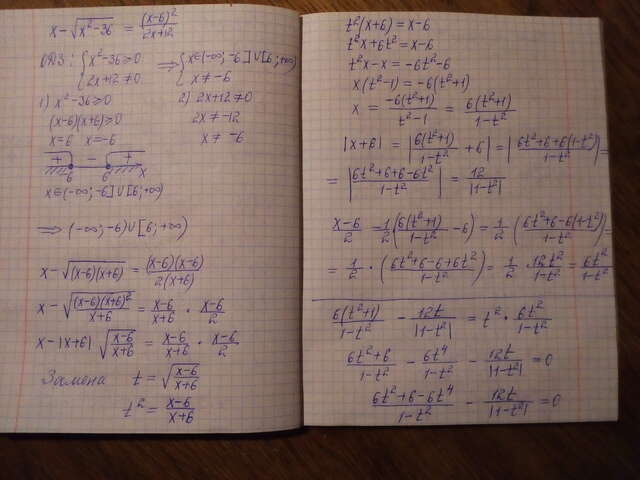 x - √(x²-36) = (x-6)²/(2x+12)
ОДЗ: { x²-36≥0 ⟹ { x∈(-∞;-6]∪[6;+∞)
2x+12≠0 x≠-6
1) x²-36≥0 2) 2x+12≠0
(x-6)(x+6)≥0 2x≠-12
x=6 x=-6 x≠-6
+ - +
6 6 x
x∈(-∞;-6]∪[6;+∞)
⟹ (-∞;-6)∪[6;+∞)
x - √((x-6)(x+6)) = (x-6)(x-6)/2(x+6)
x - √((x-6)(x+6)²/(x+6)) = (x-6)/(x+6) · (x-6)/2
x - |x+6| √((x-6)/(x+6)) = (x-6)/(x+6) · (x-6)/2
Замена t = √((x-6)/(x+6))
t² = (x-6)/(x+6)
t²(x+6) = x-6
t²x+6t² = x-6
t²x-x = -6t²-6
x(t²-1) = -6(t²+1)
x = -6(t²+1)/(t²-1) = 6(t²+1)/(1-t²)
|x+6| = |6(t²+1)/(1-t²) + 6| = |(6t²+6+6(1-t²))/(1-t²)| =
= |(6t²+6+6-6t²)/(1-t²)| = 12/|1-t²|
(x-6)/2 = 1/2 (6(t²+1)/(1-t²) - 6) = 1/2 ((6t²+6-6(1-t²))/(1-t²)) =
= 1/2 · ((6t²+6-6+6t²)/(1-t²)) = 1/2 · 12t²/(1-t²) = 6t²/(1-t²)
6(t²+1)/(1-t²) - 12t/|1-t²| = t² · 6t²/(1-t²)
(6t²+6)/(1-t²) - 6t⁴/(1-t²) - 12t/|1-t²| = 0
(6t²+6-6t⁴)/(1-t²) - 12t/|1-t²| = 0